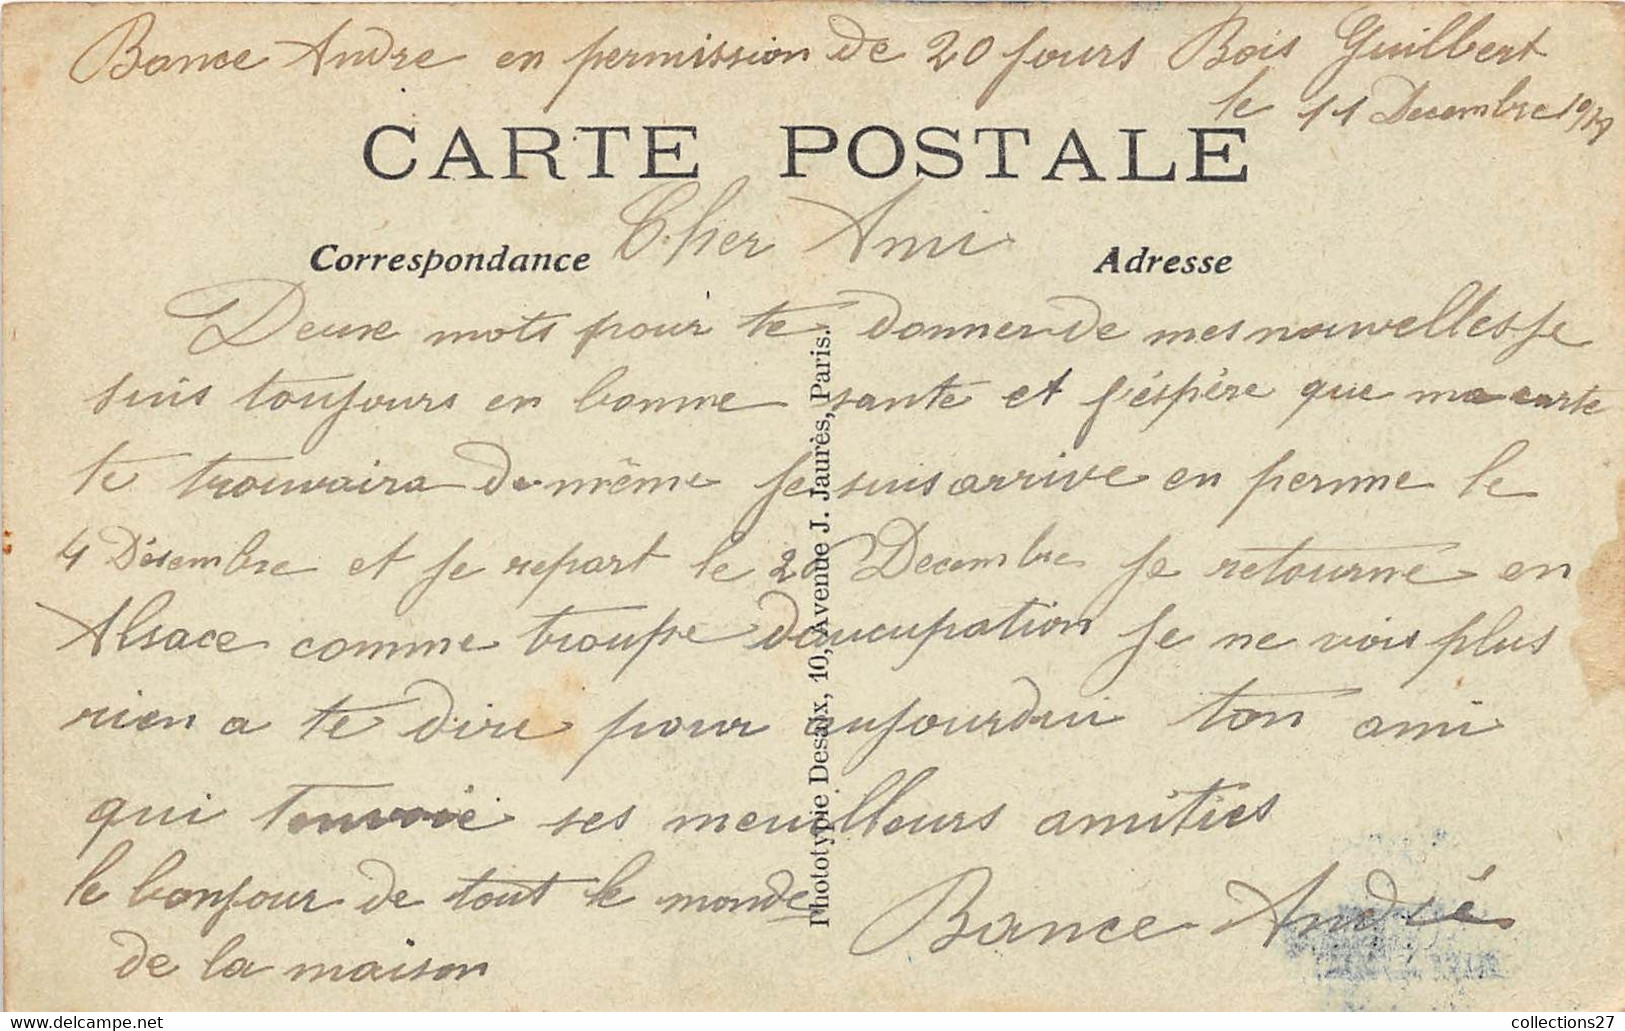 Bance Andre en permission de 20 jours Bois Guilbert
le 11 Decembre 1919
CARTE POSTALE
Cher Ami
Correspondance
Adresse
Deuxe mots pour te donner de mes nouvelles Je
suis toujours en bonne sante et j'éspère que ma carte
te trouvaira de même Je suis arrive en perme le
4 Désembre et je repart le 26 Decembre Je retourne en
Alsace comme troupe doucupation Je ne vois plus
rien a te dire pour aujourdui ton ami
qui tenvoie ses meuilleurs amities
le bonjour de tout le monde
de la maison
Bance André
Phototypie Desaix, 10, Avenue J. Jaurès, Paris.
collections27